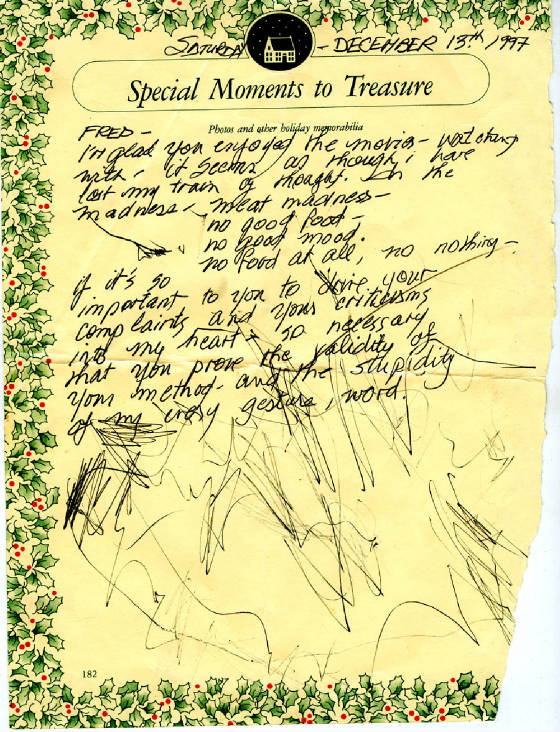 SATURDAY - DECEMBER 13th, 1997
Special Moments to Treasure
Photos and other holiday memorabilia
FRED -
I'm glad you enjoyed the movies -
with, it seems as though i have
lost my train of thought. In the
madness, meat madness -
no good food -
no good mood.
no food at all, no nothing -
if it's so
important to you to drive your
complaints and your criticisms
into my heart - so necessary
that you prove the validity of
your method - and the stupidity
of my every gesture, word.
182